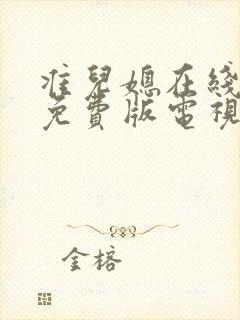 准兒媳在綫
免費版電視
金榕